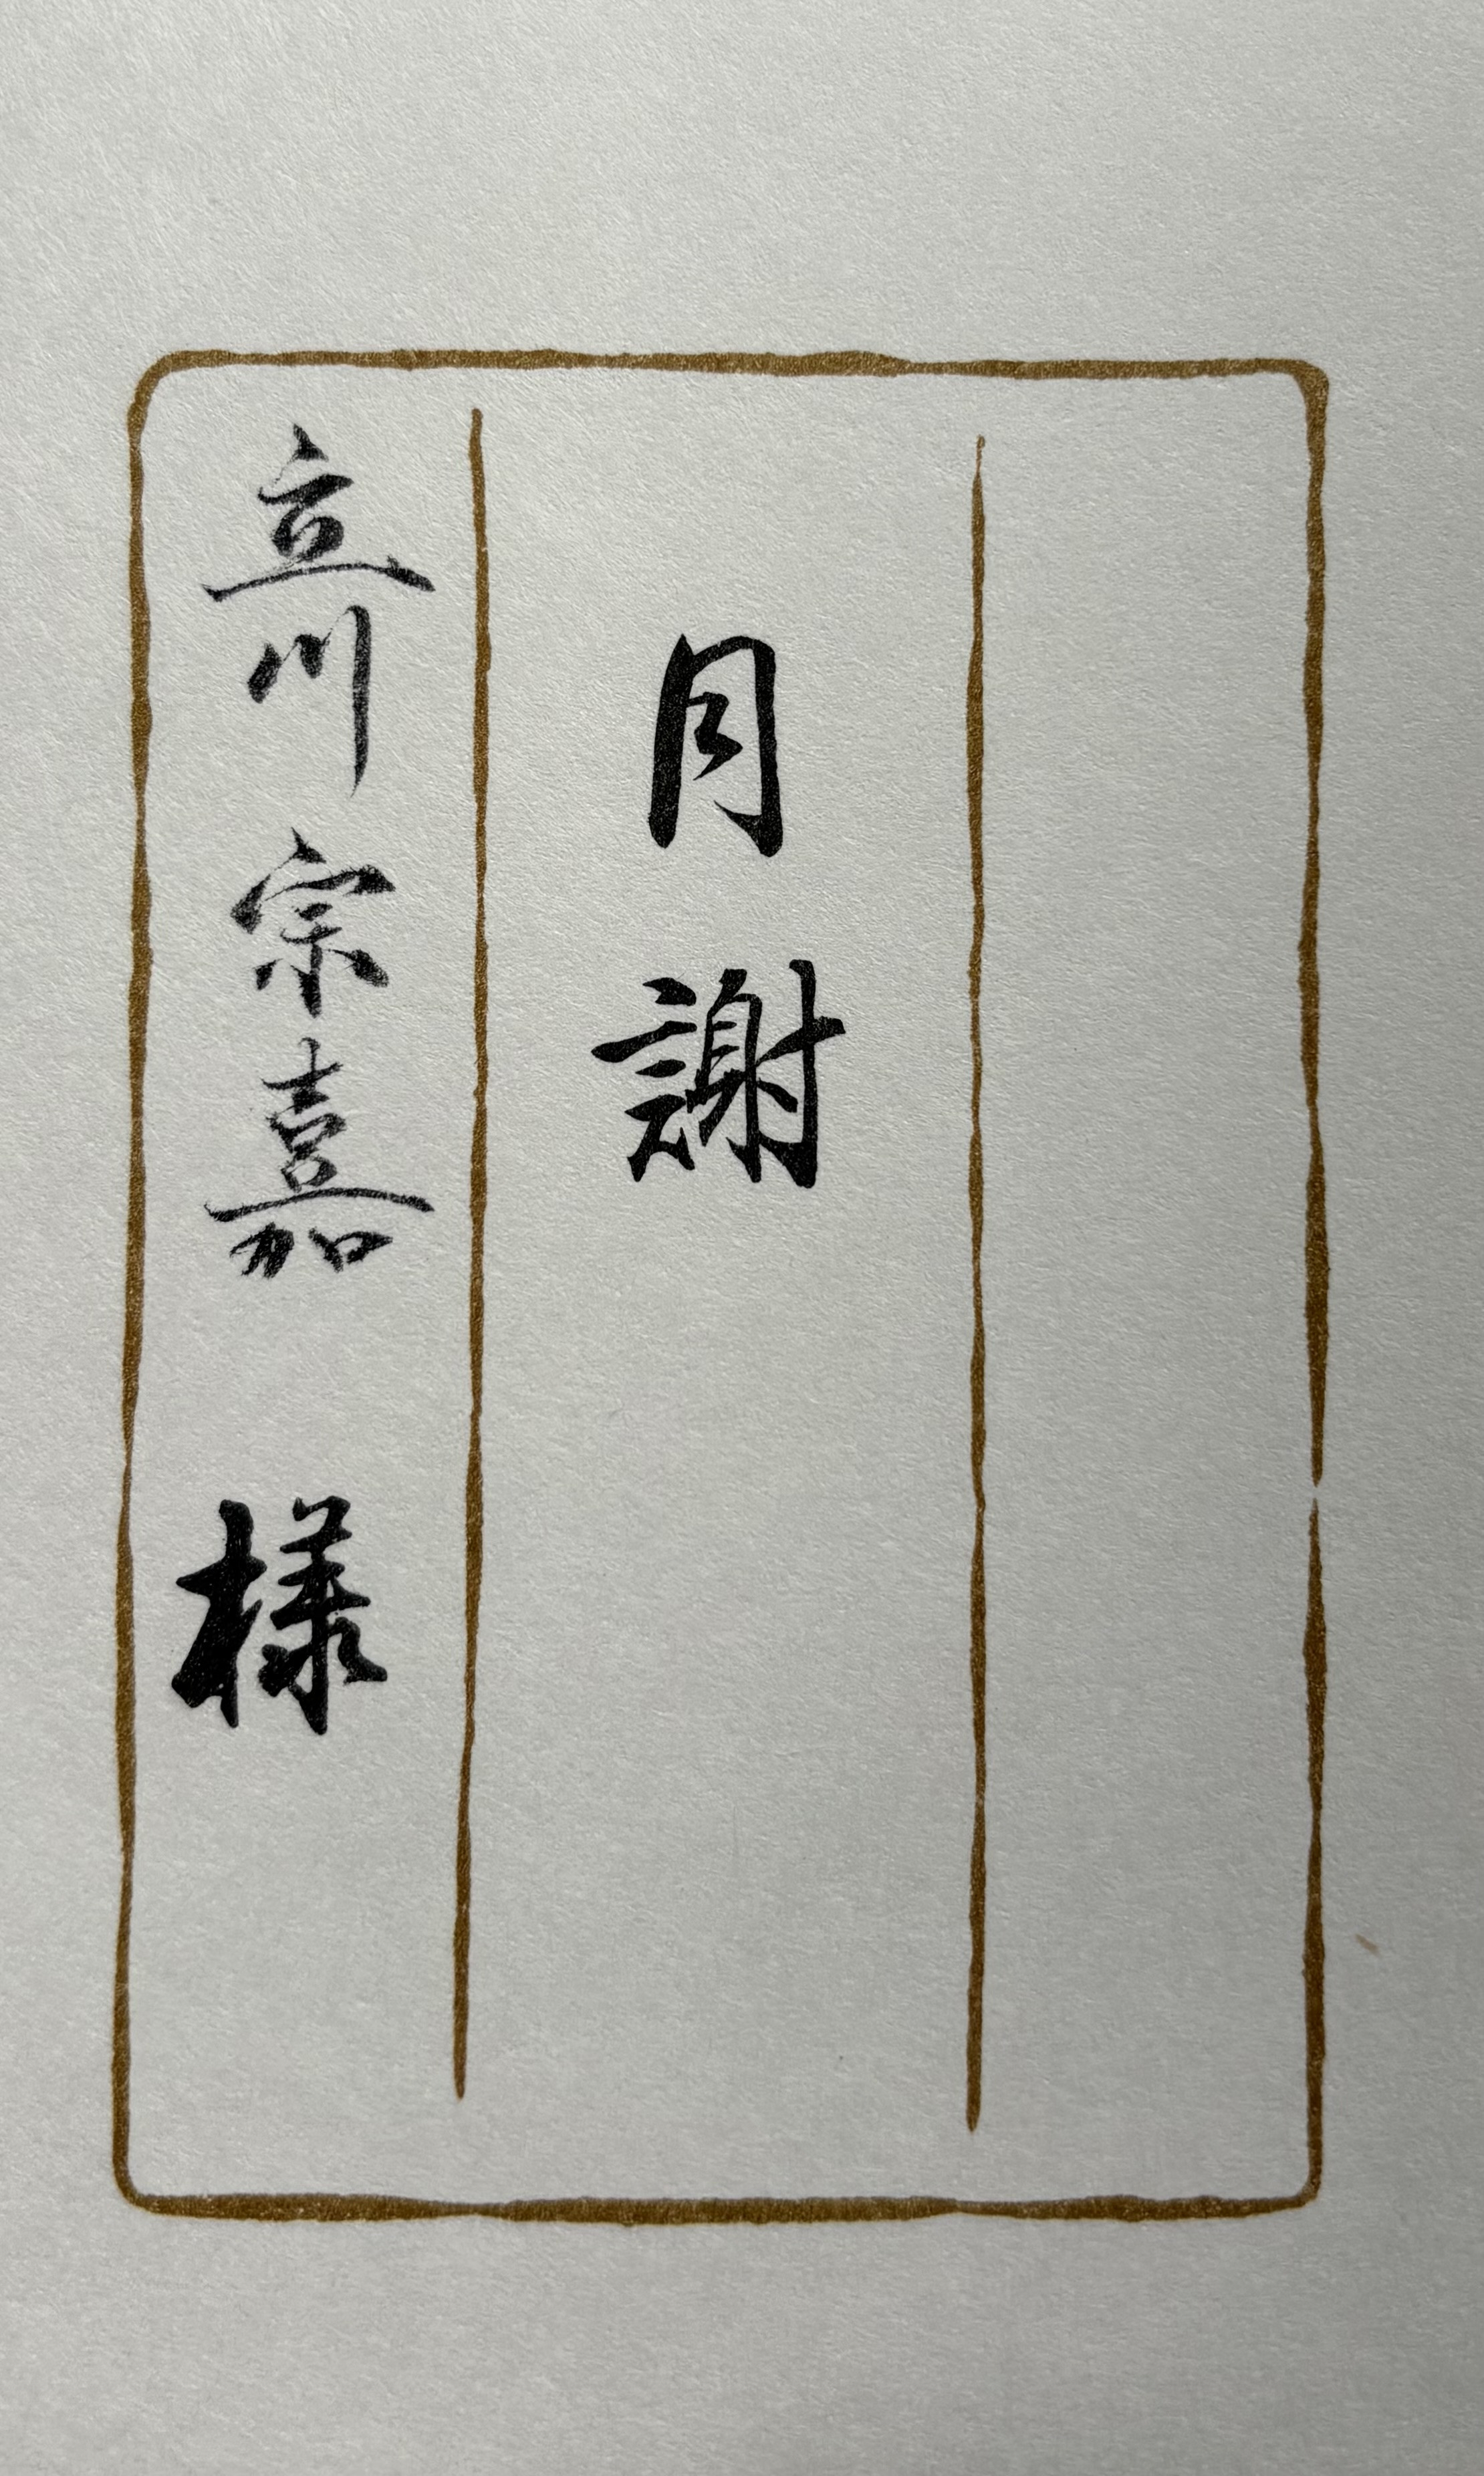 月謝
立川宗嘉 様